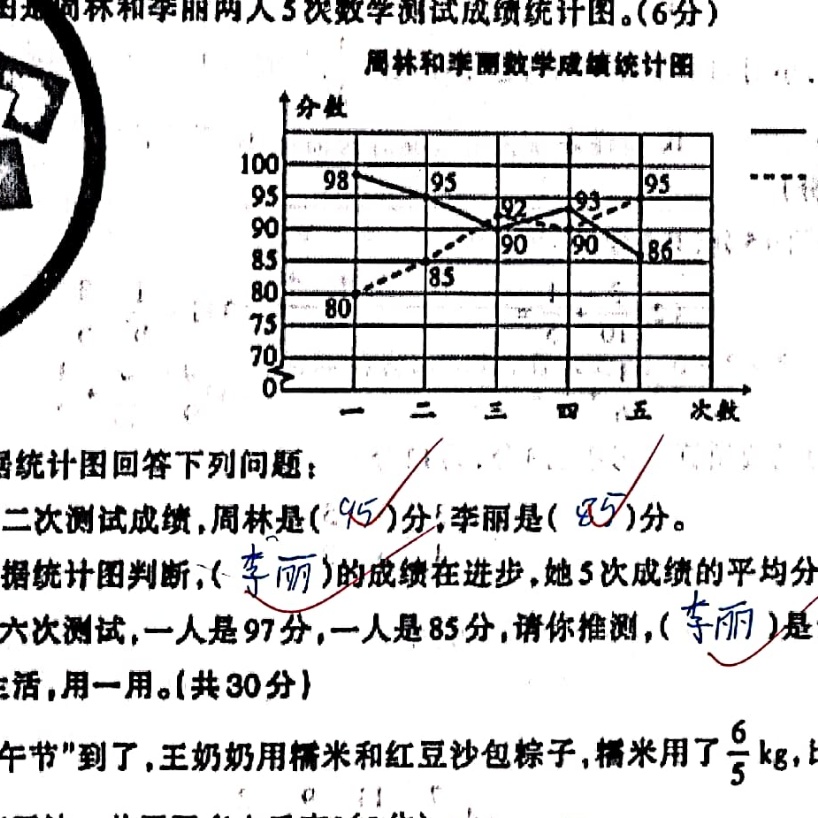 周林和李丽两人5次数学测试成绩统计图。(6分)
周林和李丽数学成绩统计图
分数
100
98
95
95
95
92
93
90
90
90
86
85
85
80
80
75
70
0
一 二 三 四 五 次数
据统计图回答下列问题:
二次测试成绩,周林是(95)分,李丽是(85)分。
据统计图判断,(李丽)的成绩在进步,她5次成绩的平均分
六次测试,一人是97分,一人是85分,请你推测,(李丽)是
生活,用一用。(共30分)
午节”到了,王奶奶用糯米和红豆沙包粽子,糯米用了6/5 kg,